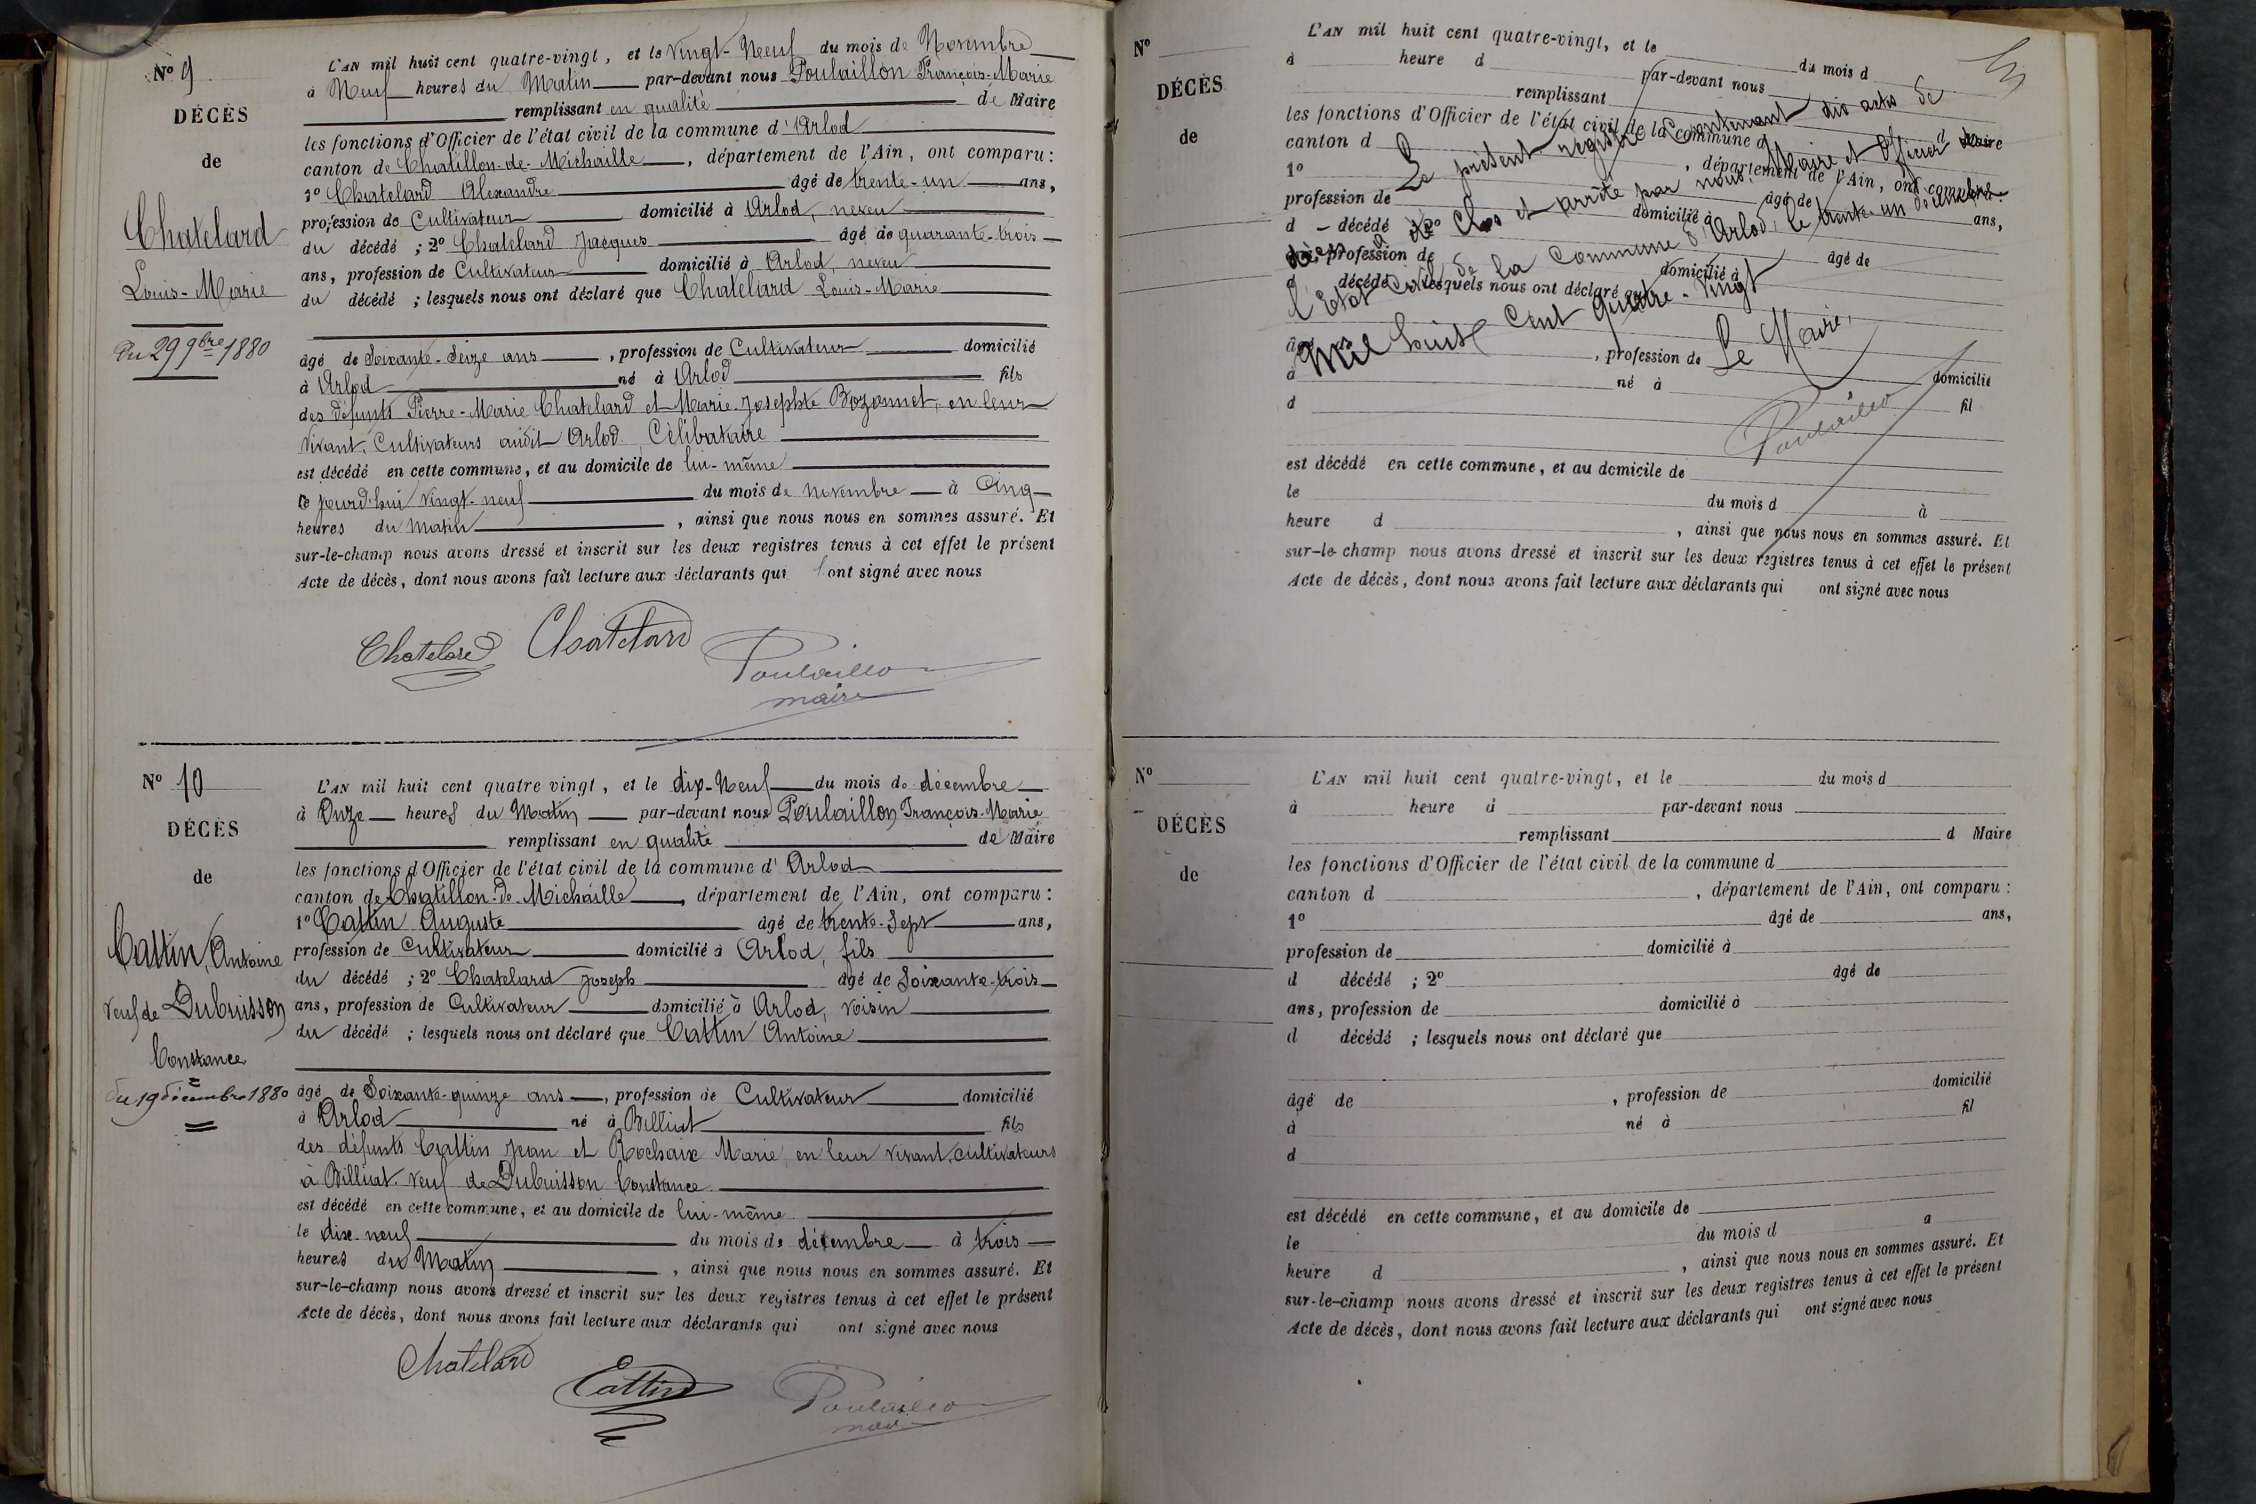 N° 9
DÉCÈS
de
Chatelard
Louis-Marie
Du 29 9bre 1880
L'AN mil huit cent quatre-vingt, et le Vingt-Neuf du mois de Novembre
à Neuf heures du Matin par-devant nous Poulaillon François-Marie
remplissant en qualité de Maire
les fonctions d'Officier de l'état civil de la commune d'Arlod
canton de Chatillon-de-Michaille, département de l'Ain, ont comparu :
1° Chatelard Alexandre âgé de trente-un ans,
profession de Cultivateur domicilié à Arlod, neveu
du décédé ; 2° Chatelard Jacques âgé de quarante-trois
ans, profession de Cultivateur domicilié à Arlod, neveu
du décédé ; lesquels nous ont déclaré que Chatelard Louis-Marie
âgé de Soixante-seize ans, profession de Cultivateur domicilié
à Arlod né à Arlod fils
des défunts Pierre-Marie Chatelard et Marie-Josephte Bozonnet, en leur
vivant, Cultivateurs audit Arlod. Célibataire
est décédé en cette commune, et au domicile de lui-même
ce jourd'hui vingt-neuf du mois de novembre à Cinq
heures du Matin, ainsi que nous nous en sommes assuré. Et
sur-le-champ nous avons dressé et inscrit sur les deux registres tenus à cet effet le présent
Acte de décès, dont nous avons fait lecture aux déclarants qui l'ont signé avec nous
Chatelard Chatelard Poulaillon
maire
N° 10
DÉCÈS
de
Cattin, Antoine
veuf de Dubuisson
Constance
Du 19 décembre 1880
L'AN mil huit cent quatre vingt, et le dix-Neuf du mois de décembre
à Onze heures du Matin par-devant nous Poulaillon François-Marie
remplissant en qualité de Maire
les fonctions d'Officier de l'état civil de la commune d'Arlod
canton de Chatillon-de-Michaille, département de l'Ain, ont comparu :
1° Cattin Auguste âgé de trente-Sept ans,
profession de Cultivateur domicilié à Arlod, fils
du décédé ; 2° Chatelard Joseph âgé de Soixante-trois
ans, profession de Cultivateur domicilié à Arlod, voisin
du décédé ; lesquels nous ont déclaré que Cattin Antoine
âgé de Soixante-quinze ans, profession de Cultivateur domicilié
à Arlod né à Billiat fils
des défunts Cattin Jean et Rochaix Marie, en leur vivant, cultivateurs
à Billiat. Veuf de Dubuisson Constance
est décédé en cette commune, et au domicile de lui-même
le dix-neuf du mois de décembre à trois
heures du Matin, ainsi que nous nous en sommes assuré. Et
sur-le-champ nous avons dressé et inscrit sur les deux registres tenus à cet effet le présent
Acte de décès, dont nous avons fait lecture aux déclarants qui ont signé avec nous
Chatelard Cattin Poulaillon
maire
N°
DÉCÈS
de
L'AN mil huit cent quatre-vingt, et le du mois d
à heure d par-devant nous
remplissant d Maire
les fonctions d'Officier de l'état civil de la commune d
canton d , département de l'Ain, ont comparu :
1° âgé de ans,
profession de domicilié à
d décédé ; 2° âgé de
ans, profession de domicilié à
d décédé ; lesquels nous ont déclaré que
âgé de , profession de domicilié
à né à fil
d
est décédé en cette commune, et au domicile de
le du mois d à
heure d , ainsi que nous nous en sommes assuré. Et
sur-le-champ nous avons dressé et inscrit sur les deux registres tenus à cet effet le présent
Acte de décès, dont nous avons fait lecture aux déclarants qui ont signé avec nous
Le présent registre contenant dix actes de
décès a été Clos et arrêté par nous, Maire et Officier de
l'Etat Civil de la Commune d'Arlod, le trente-un décembre
Mil huit Cent quatre-Vingt
Le Maire,
Poulaillon
N°
DÉCÈS
de
L'AN mil huit cent quatre-vingt, et le du mois d
à heure d par-devant nous
remplissant d Maire
les fonctions d'Officier de l'état civil de la commune d
canton d , département de l'Ain, ont comparu :
1° âgé de ans,
profession de domicilié à
d décédé ; 2° âgé de
ans, profession de domicilié à
d décédé ; lesquels nous ont déclaré que
âgé de , profession de domicilié
à né à fil
d
est décédé en cette commune, et au domicile de
le du mois d à
heure d , ainsi que nous nous en sommes assuré. Et
sur-le-champ nous avons dressé et inscrit sur les deux registres tenus à cet effet le présent
Acte de décès, dont nous avons fait lecture aux déclarants qui ont signé avec nous